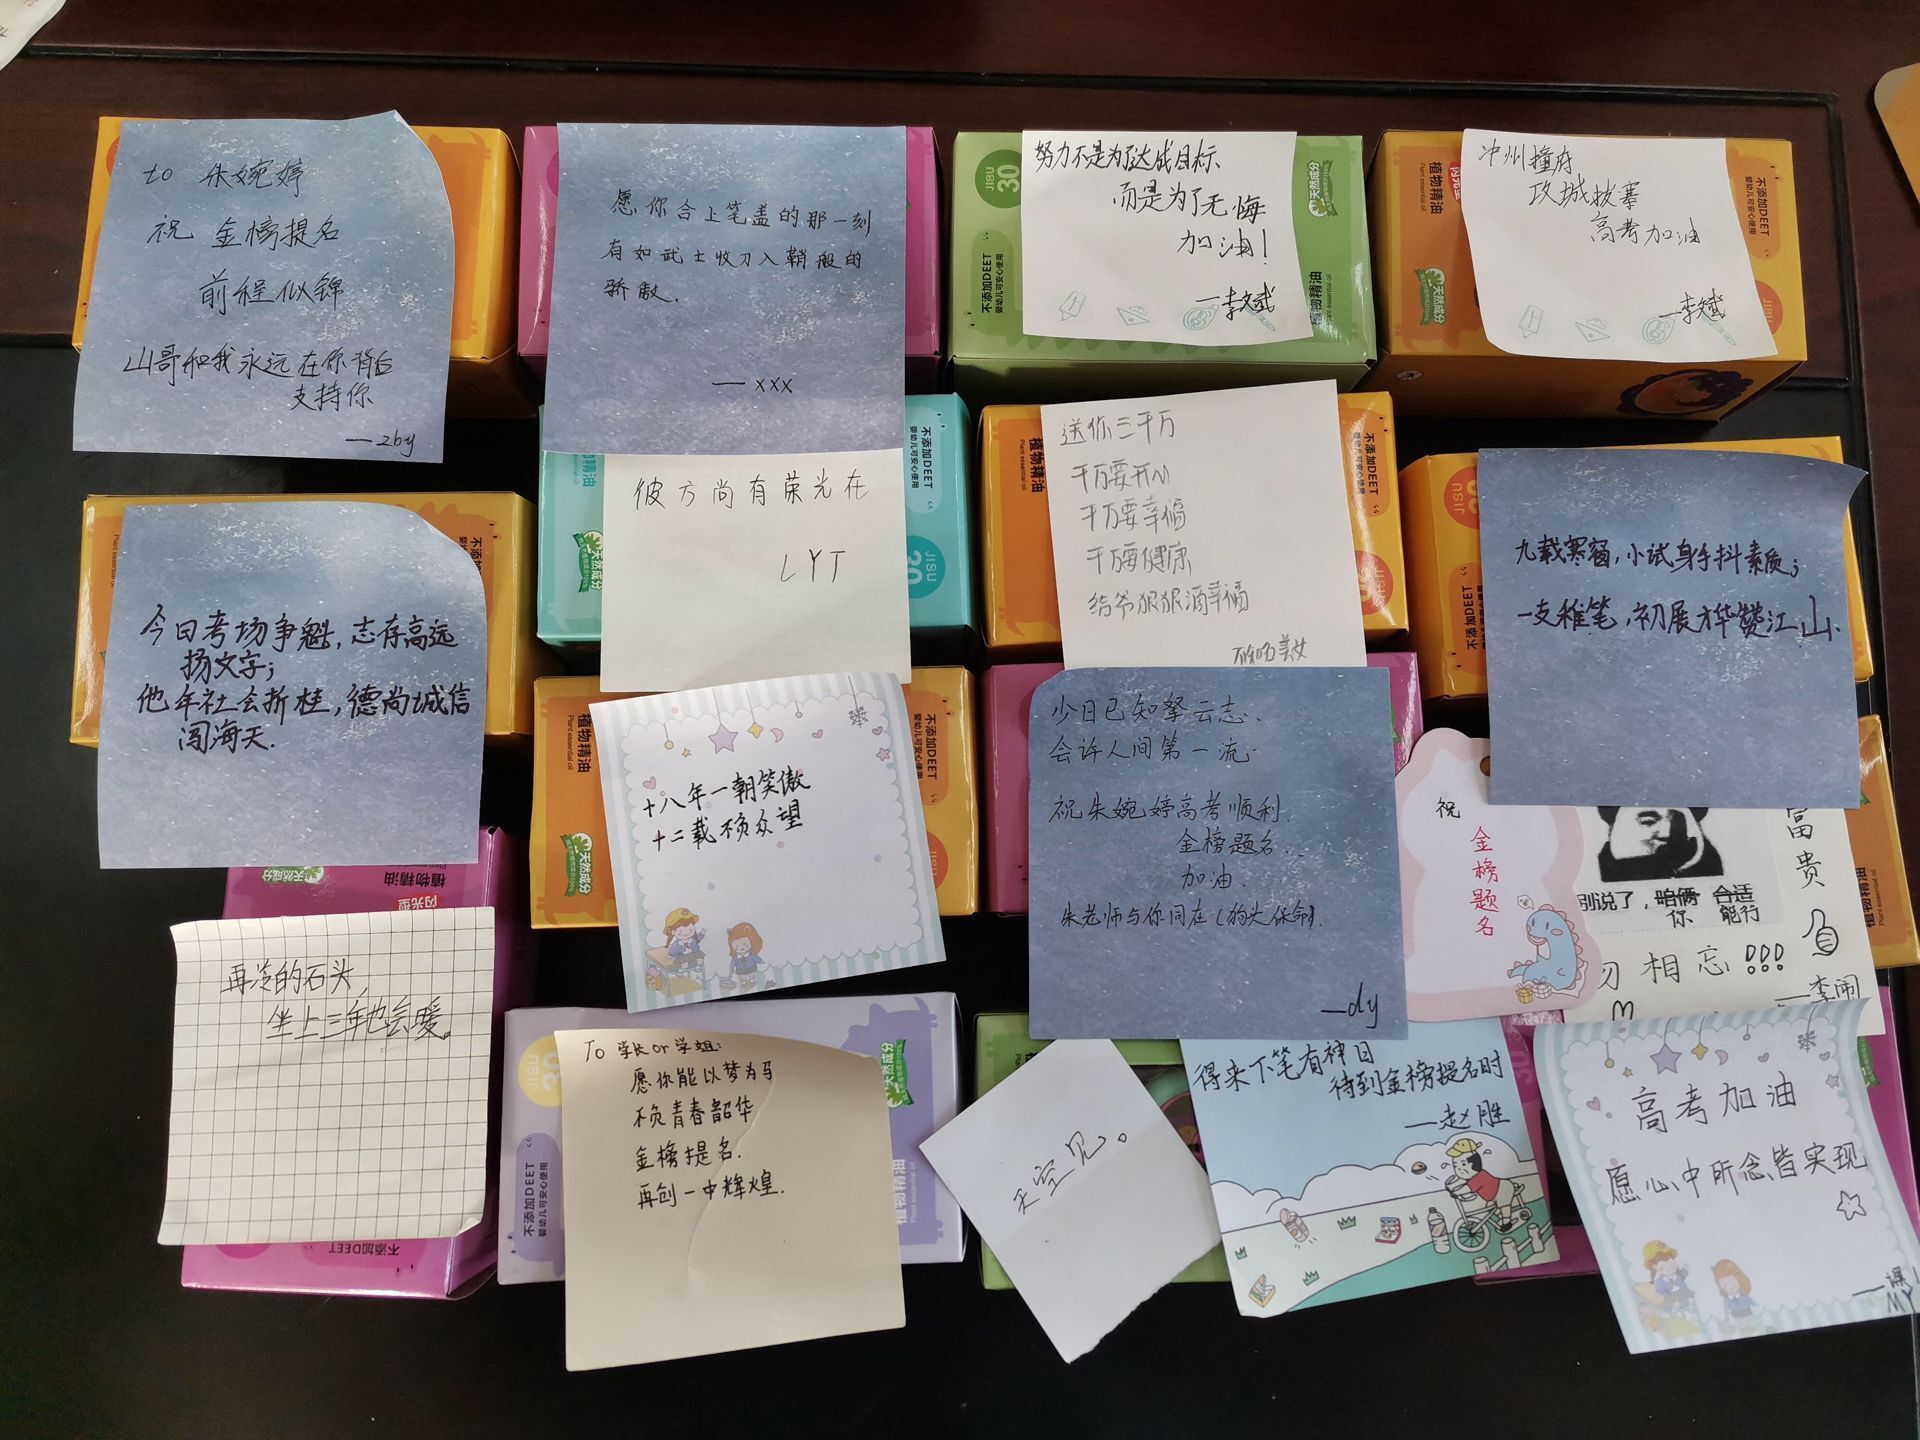 to 朱婉婷
祝 金榜提名
前程似锦
山哥和我永远在你背后
支持你
—zby
愿你合上笔盖的那一刻
有如武士收刀入鞘般的
骄傲.
— xxx
努力不是为了达成目标、
而是为了无悔
加油!
—李文斌
冲州撞府
攻城拔寨
高考加油
—李斌
彼方尚有荣光在
LYT
送你三千万
千万要开心
千万要幸福
千万要健康
给爷狠狠洒幸福
美女
九载寒窗,小试身手抖素质;
一支稚笔,初展才华赞江山.
今日考场争魁,志存高远
扬文字;
他年社会折桂,德尚诚信
闯海天.
十八年一朝笑傲
十二载不负众望
少日已知拏云志.
会许人间第一流.
祝朱婉婷高考顺利.
金榜题名...
加油.
朱老师与你同在
—dy
祝
金榜题名
富贵
别说了, 咱俩 合适
你 能行
勿相忘!!!
—李闹
再冷的石头,
坐上三年也会暖。
To 学长or学姐:
愿你能以梦为马
不负青春韶华
金榜提名.
再创一中辉煌.
天空见。
得来下笔有神日
待到金榜提名时
—赵胜
高考加油
愿心中所念皆实现
MY
JISU
30
不添加DEET
婴幼儿可安心使用
天然成分
植物精油
Plant essential oil
闪充型